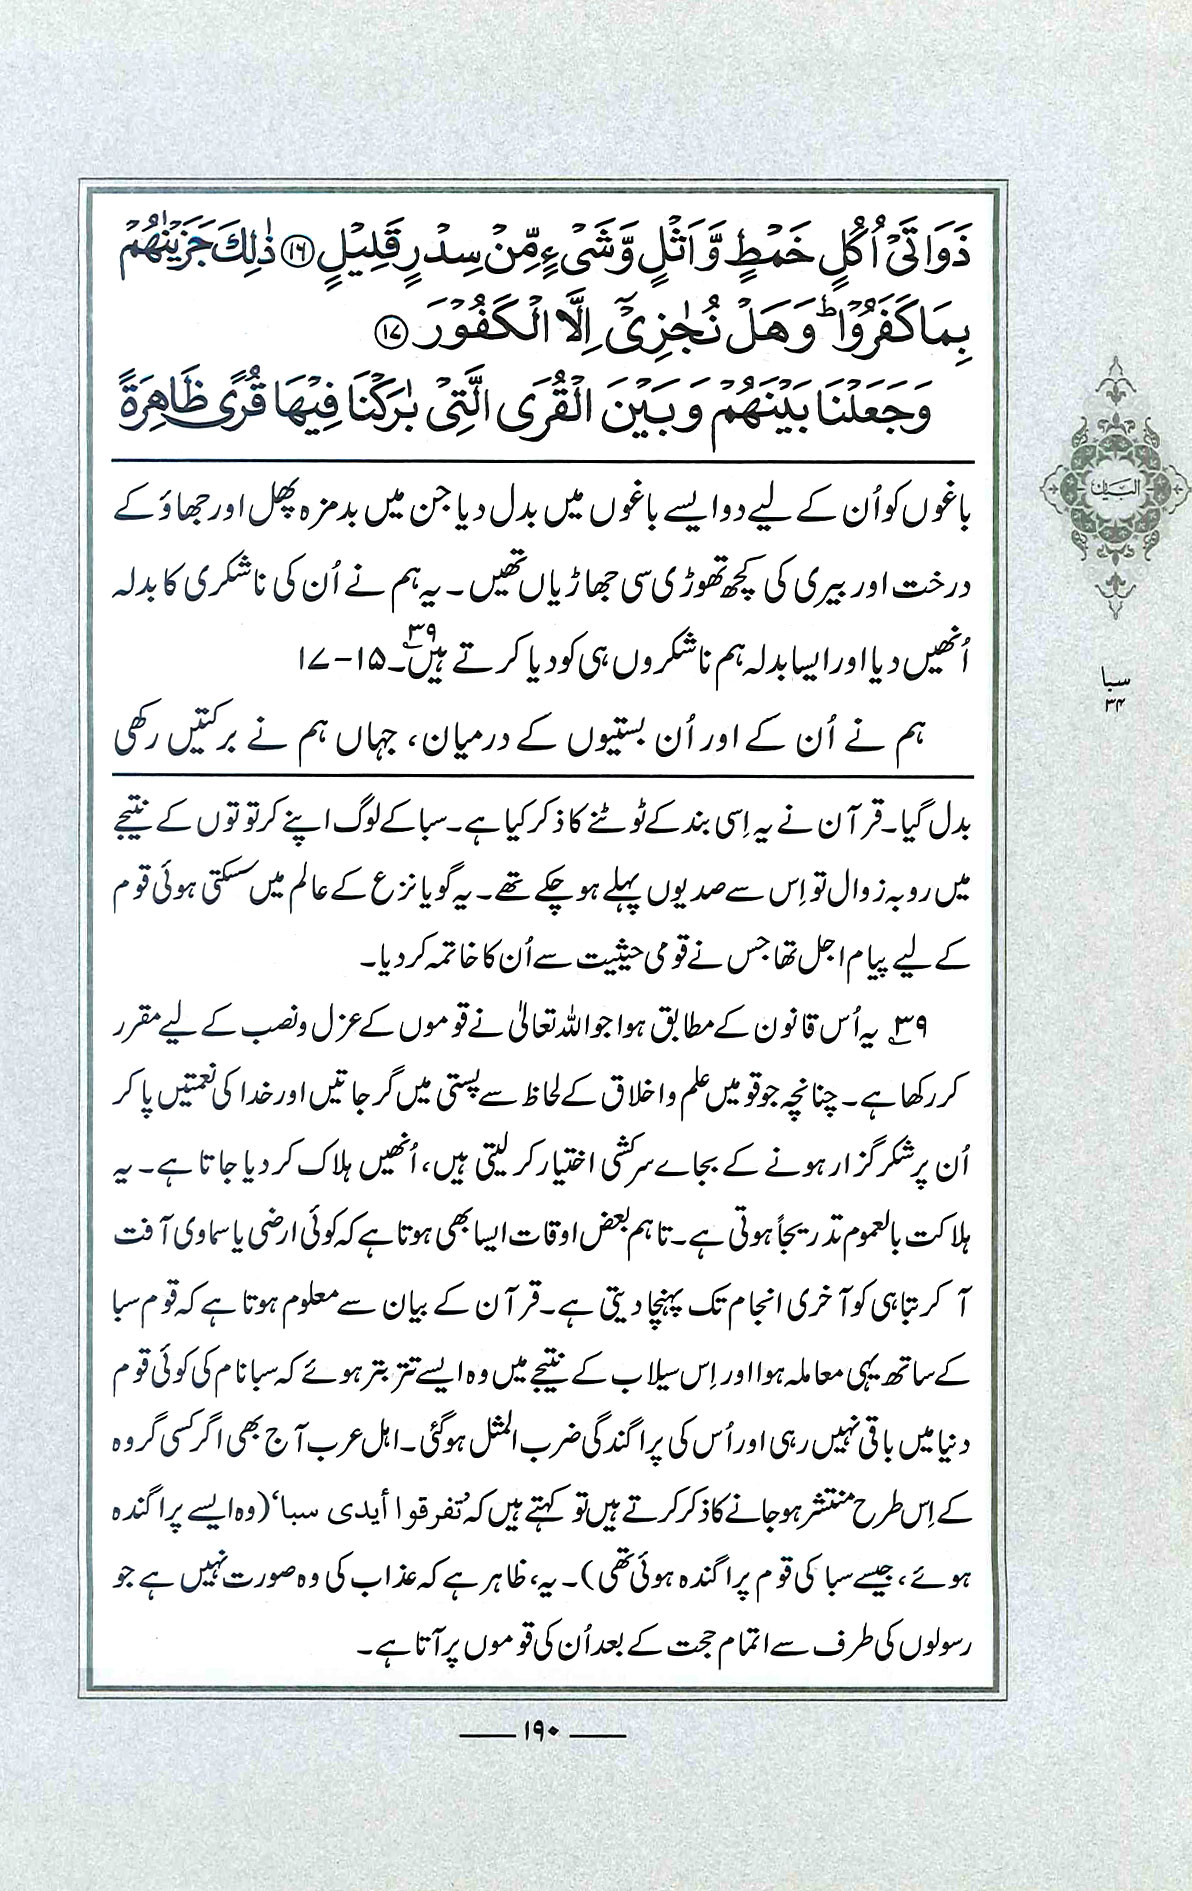 ذَوَاتَيۡ اُكُلٍ خَمۡطٍ وَّاَثۡلٍ وَّشَيۡءٍ مِّنۡ سِدۡرٍ قَلِيۡلٍ ﴿۱۶﴾ ذٰلِكَ جَزَيۡنٰهُمۡ
بِمَا كَفَرُوۡا ؕ وَهَلۡ نُجٰزِيۡۤ اِلَّا الۡكَفُوۡرَ ﴿۱۷﴾
وَجَعَلۡنَا بَيۡنَهُمۡ وَبَيۡنَ الۡقُرَى الَّتِيۡ بٰرَكۡنَا فِيۡهَا قُرًى ظَاهِرَةً
باغوں کو اُن کے لیے دو ایسے باغوں میں بدل دیا جن میں بدمزہ پھل اور جھاؤ کے
درخت اور بیری کی کچھ تھوڑی سی جھاڑیاں تھیں۔ یہ ہم نے اُن کی ناشکری کا بدلہ
اُنھیں دیا اور ایسا بدلہ ہم ناشکروں ہی کو دیا کرتے ہیں۳۹۔ ۱۵-۱۷
ہم نے اُن کے اور اُن بستیوں کے درمیان، جہاں ہم نے برکتیں رکھی
بدل گیا۔ قرآن نے یہ اِسی بند کے ٹوٹنے کا ذکر کیا ہے۔ سبا کے لوگ اپنے کرتوتوں کے نتیجے
میں روبہ زوال تو اِس سے صدیوں پہلے ہو چکے تھے۔ یہ گویا نزع کے عالم میں سسکتی ہوئی قوم
کے لیے پیام اجل تھا جس نے قومی حیثیت سے اُن کا خاتمہ کر دیا۔
۳۹ یہ اُس قانون کے مطابق ہوا جو اللہ تعالیٰ نے قوموں کے عزل و نصب کے لیے مقرر
کر رکھا ہے۔ چنانچہ جو قومیں علم و اخلاق کے لحاظ سے پستی میں گر جاتیں اور خدا کی نعمتیں پا کر
اُن پر شکر گزار ہونے کے بجاے سرکشی اختیار کر لیتی ہیں، اُنھیں ہلاک کر دیا جاتا ہے۔ یہ
ہلاکت بالعموم تدریجاً ہوتی ہے۔ تاہم بعض اوقات ایسا بھی ہوتا ہے کہ کوئی ارضی یا سماوی آفت
آ کر تباہی کو آخری انجام تک پہنچا دیتی ہے۔ قرآن کے بیان سے معلوم ہوتا ہے کہ قوم سبا
کے ساتھ یہی معاملہ ہوا اور اِس سیلاب کے نتیجے میں وہ ایسے تتر بتر ہوئے کہ سبا نام کی کوئی قوم
دنیا میں باقی نہیں رہی اور اُس کی پراگندگی ضرب المثل ہوگئی۔ اہل عرب آج بھی اگر کسی گروہ
کے اِس طرح منتشر ہو جانے کا ذکر کرتے ہیں تو کہتے ہیں کہ ’تفرقوا أيدي سبا‘ (وہ ایسے پراگندہ
ہوئے، جیسے سبا کی قوم پراگندہ ہوئی تھی)۔ یہ، ظاہر ہے کہ عذاب کی وہ صورت نہیں ہے جو
رسولوں کی طرف سے اتمام حجت کے بعد اُن کی قوموں پر آتا ہے۔
البیان
سبا
۳۴
۱۹۰